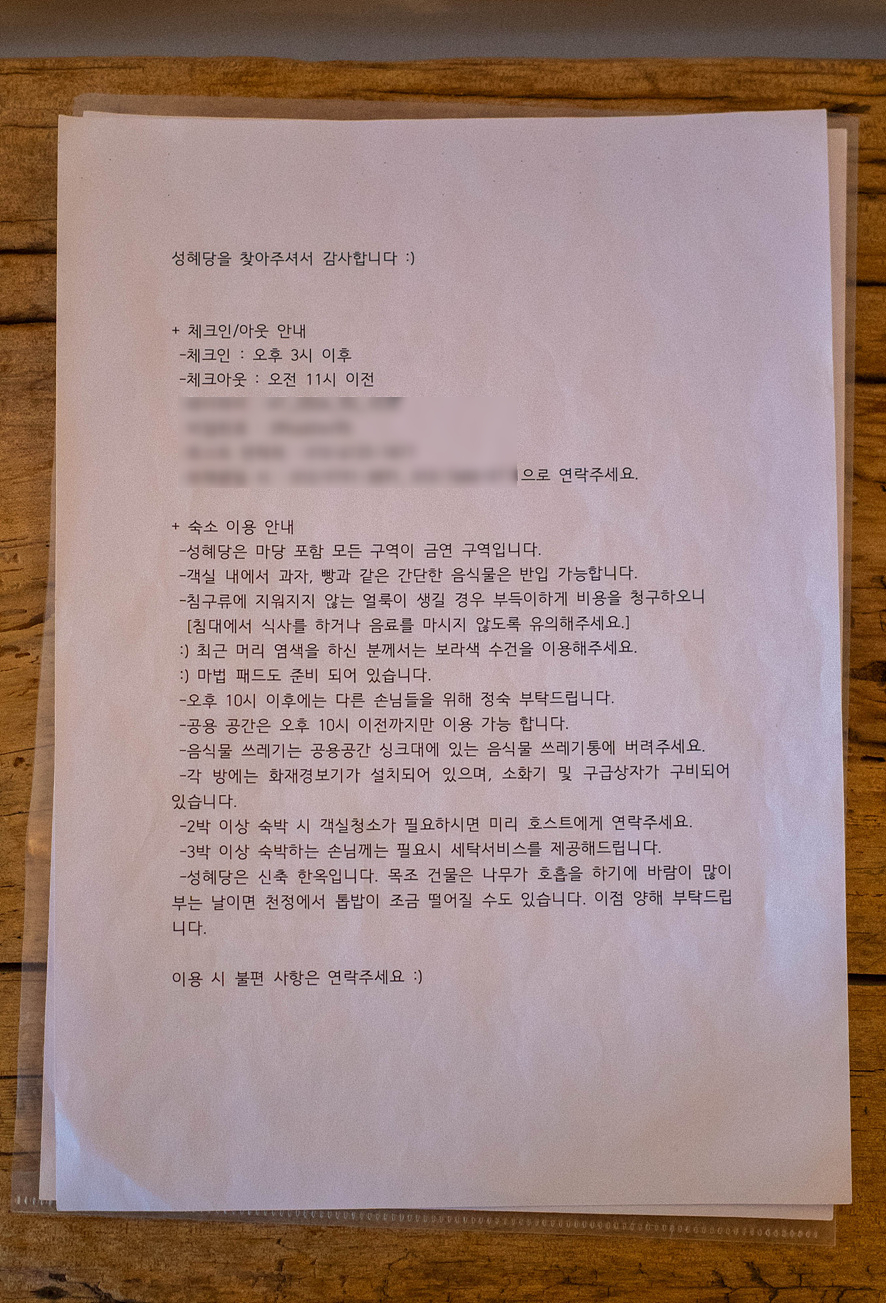 성혜당을 찾아주셔서 감사합니다 :)
+ 체크인/아웃 안내
-체크인 : 오후 3시 이후
-체크아웃 : 오전 11시 이전
으로 연락주세요.
+ 숙소 이용 안내
-성혜당은 마당 포함 모든 구역이 금연 구역입니다.
-객실 내에서 과자, 빵과 같은 간단한 음식물은 반입 가능합니다.
-침구류에 지워지지 않는 얼룩이 생길 경우 부득이하게 비용을 청구하오니
[침대에서 식사를 하거나 음료를 마시지 않도록 유의해주세요.]
:) 최근 머리 염색을 하신 분께서는 보라색 수건을 이용해주세요.
:) 마법 패드도 준비 되어 있습니다.
-오후 10시 이후에는 다른 손님들을 위해 정숙 부탁드립니다.
-공용 공간은 오후 10시 이전까지만 이용 가능 합니다.
-음식물 쓰레기는 공용공간 싱크대에 있는 음식물 쓰레기통에 버려주세요.
-각 방에는 화재경보기가 설치되어 있으며, 소화기 및 구급상자가 구비되어
있습니다.
-2박 이상 숙박 시 객실청소가 필요하시면 미리 호스트에게 연락주세요.
-3박 이상 숙박하는 손님께는 필요시 세탁서비스를 제공해드립니다.
-성혜당은 신축 한옥입니다. 목조 건물은 나무가 호흡을 하기에 바람이 많이
부는 날이면 천정에서 톱밥이 조금 떨어질 수도 있습니다. 이점 양해 부탁드립
니다.
이용 시 불편 사항은 연락주세요 :)